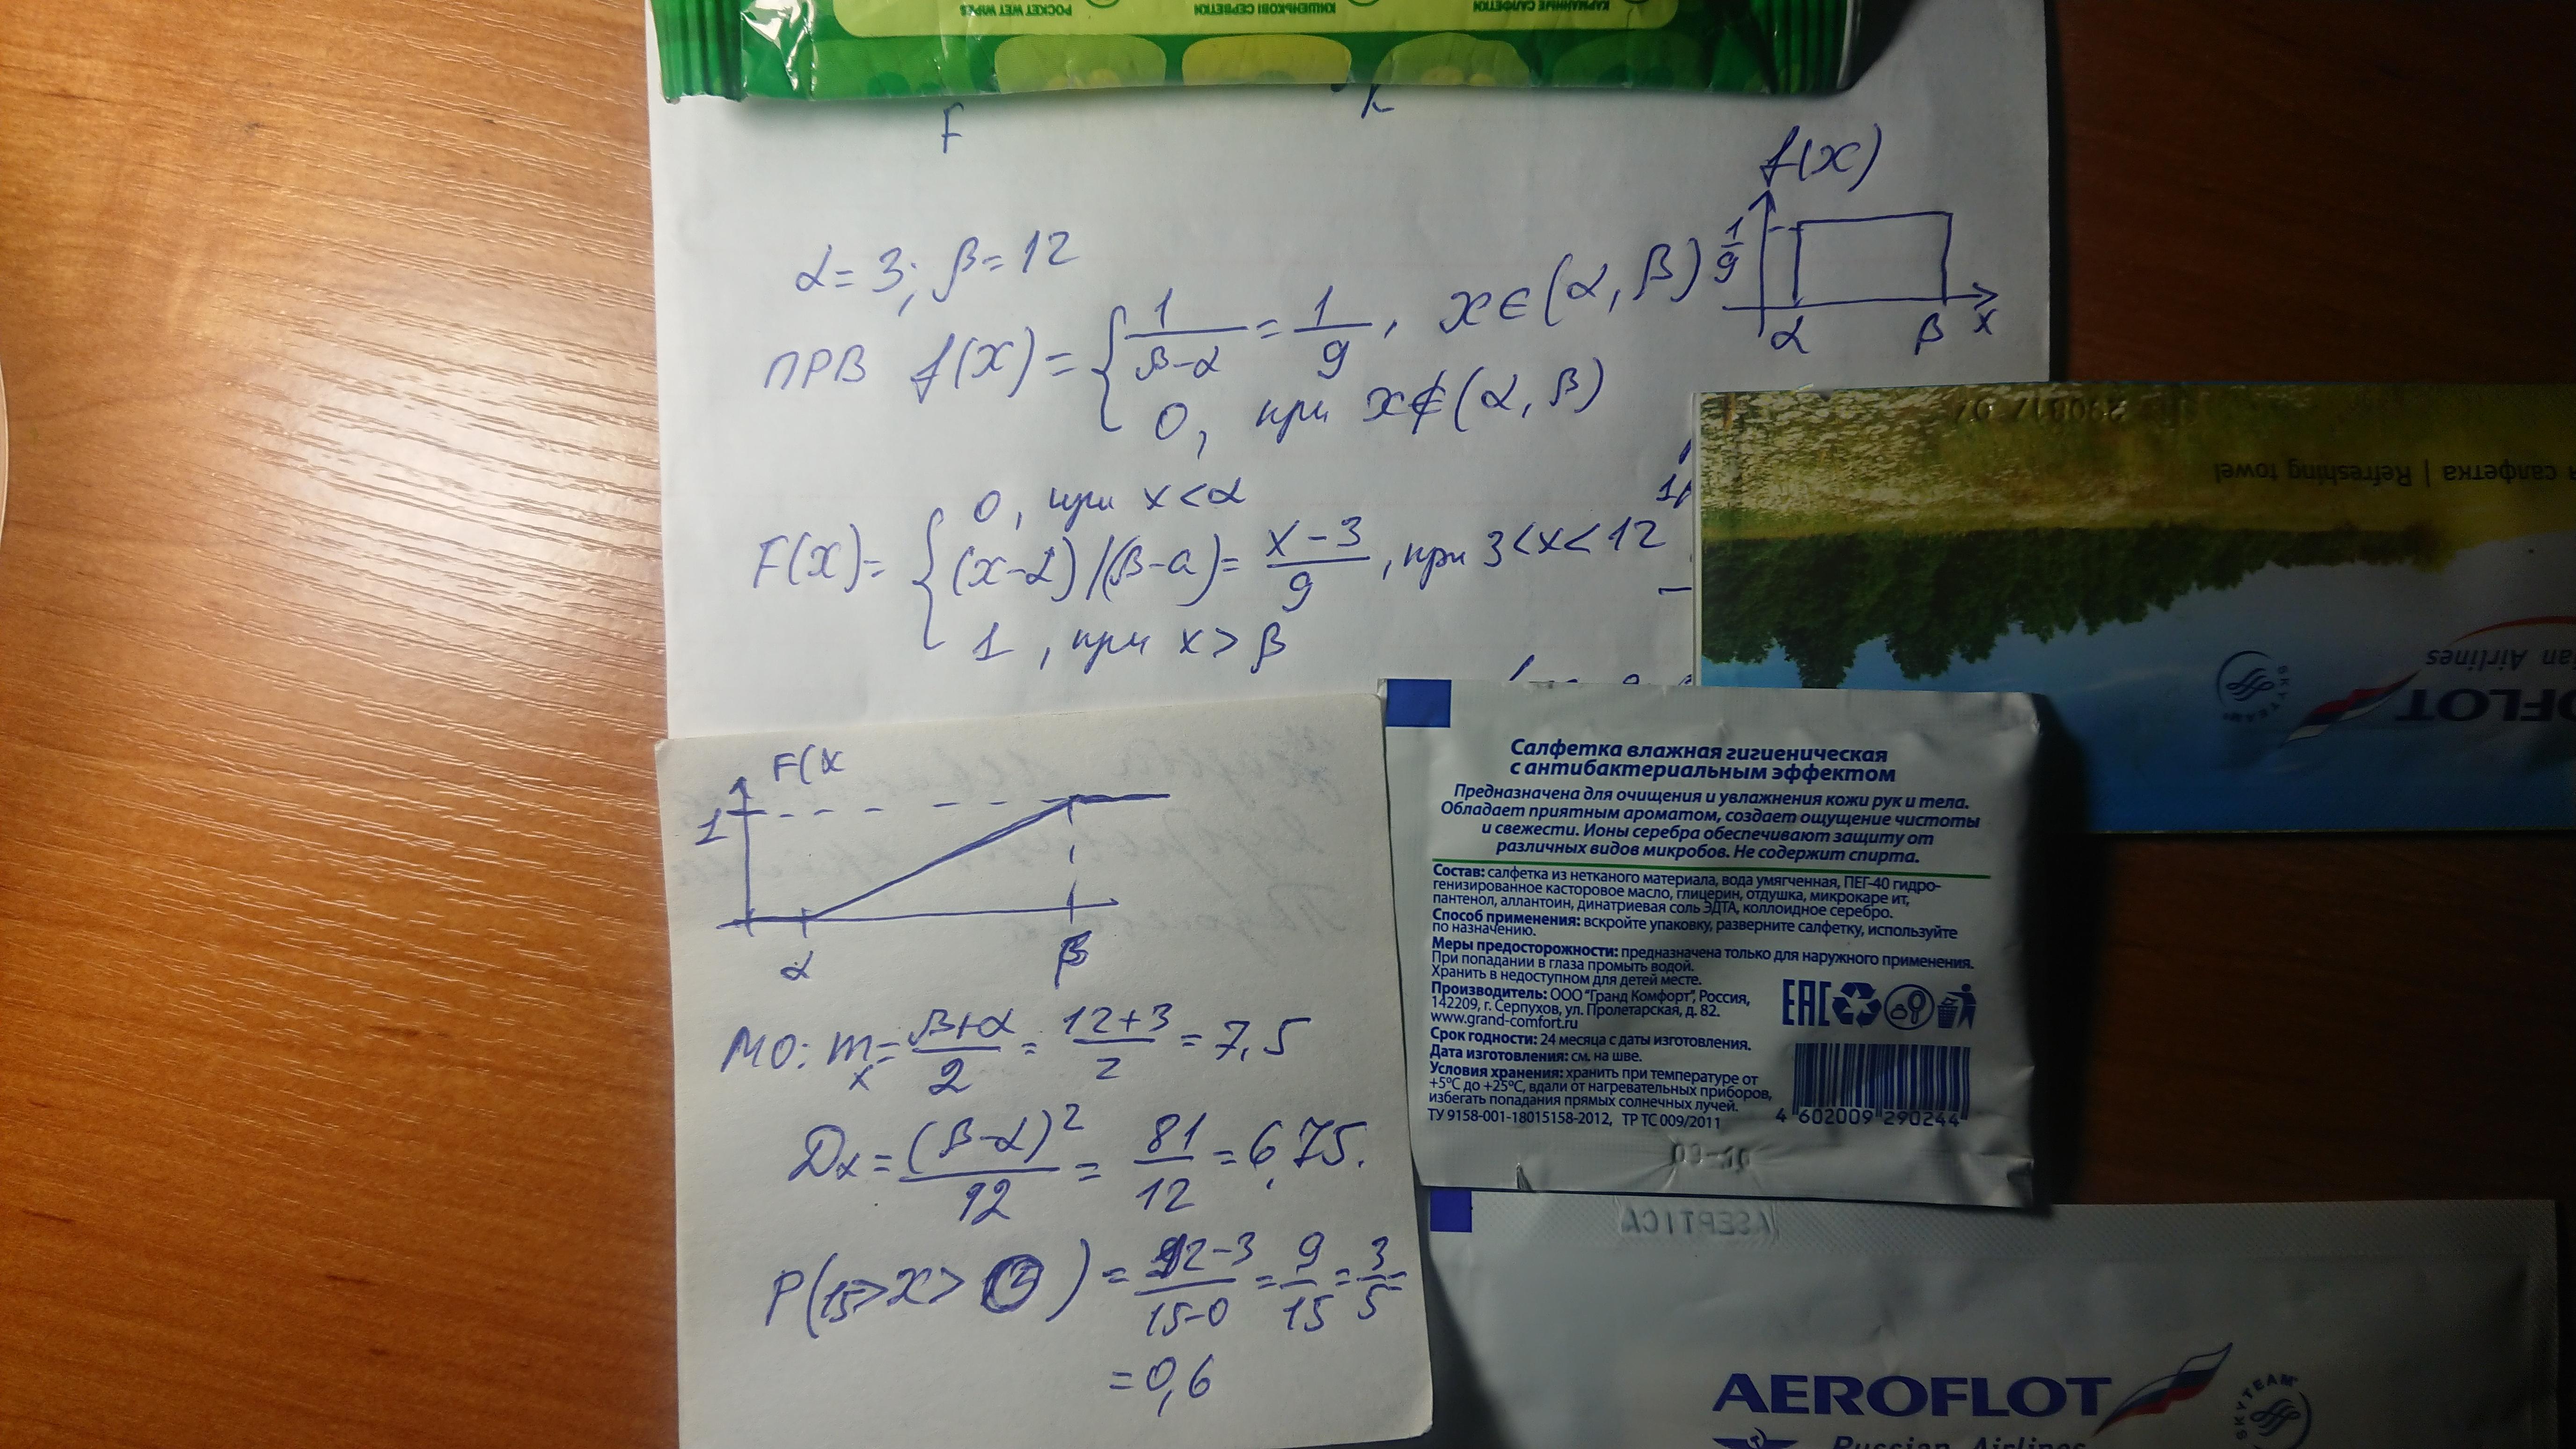 POCKET WET WIPES
КИШЕНЬКОВІ СЕРВЕТКИ
КАРМАННЫЕ САЛФЕТКИ
F
к
f(x)
1/9
α β x
α = 3; β = 12
ПРВ f(x) = { 1/(β-α) = 1/9, x ∈ (α, β)
0, при x ∉ (α, β)
F(x) = { 0, при x < α
(x-α)/(β-a) = (x-3)/9, при 3 < x < 12
1, при x > β
290817 07
салфетка | Refreshing towel
Airlines
SKYTEAM
OFLOT
F(x
1
α β
МО: mx = (β+α)/2 = (12+3)/2 = 7,5
Dx = (β-α)²/12 = 81/12 = 6,75.
P(15 > x > 0) = (12-3)/(15-0) = 9/15 = 3/5 =
= 0,6
Салфетка влажная гигиеническая
с антибактериальным эффектом
Предназначена для очищения и увлажнения кожи рук и тела.
Обладает приятным ароматом, создает ощущение чистоты
и свежести. Ионы серебра обеспечивают защиту от
различных видов микробов. Не содержит спирта.
Состав: салфетка из нетканого материала, вода умягченная, ПЕГ-40 гидро-
генизированное касторовое масло, глицерин, отдушка, микрокаре ит,
пантенол, аллантоин, динатриевая соль ЭДТА, коллоидное серебро.
Способ применения: вскройте упаковку, разверните салфетку, используйте
по назначению.
Меры предосторожности: предназначена только для наружного применения.
При попадании в глаза промыть водой.
Хранить в недоступном для детей месте.
Производитель: ООО "Гранд Комфорт", Россия,
142209, г. Серпухов, ул. Пролетарская, д. 82.
www.grand-comfort.ru
Срок годности: 24 месяца с даты изготовления.
Дата изготовления: см. на шве.
Условия хранения: хранить при температуре от
+5°C до +25°C, вдали от нагревательных приборов,
избегать попадания прямых солнечных лучей.
ТУ 9158-001-18015158-2012, ТР ТС 009/2011
EAC
4 602009 290244
ASEPTICA
AEROFLOT
Russian Airlines
SKYTEAM